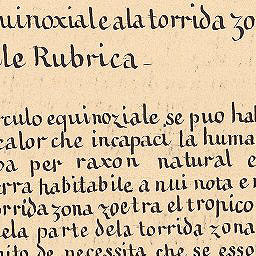 uinoxiale ala torrida zo
le Rubrica -
rculo equinoziale se puo hab
calor che incapaci la huma
va per raxon natural e
erra habitabile a nui nota e n
orrida zona zoe tra el tropico
ela parte dela torrida zona
nito de necessita che se esso